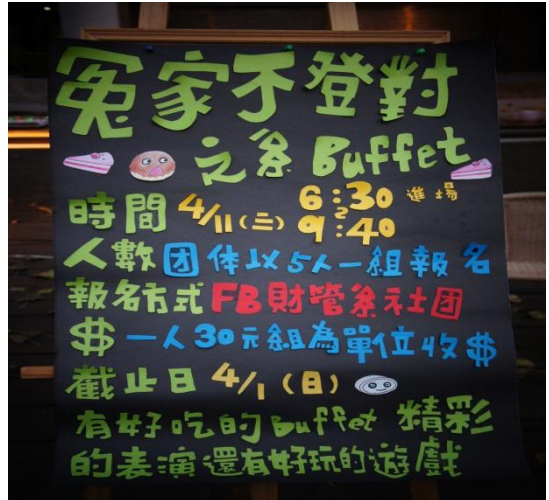 冤家不登對
之系Buffet
時間 4/11(二) 6:30 進場
2
9:40
人數 团体以5人一組報名
報名方式 FB財管系社团
$ 一人30元組為單位收$
截止日 4/1(日)
有好吃的Buffet 精彩
的表演還有好玩的遊戲